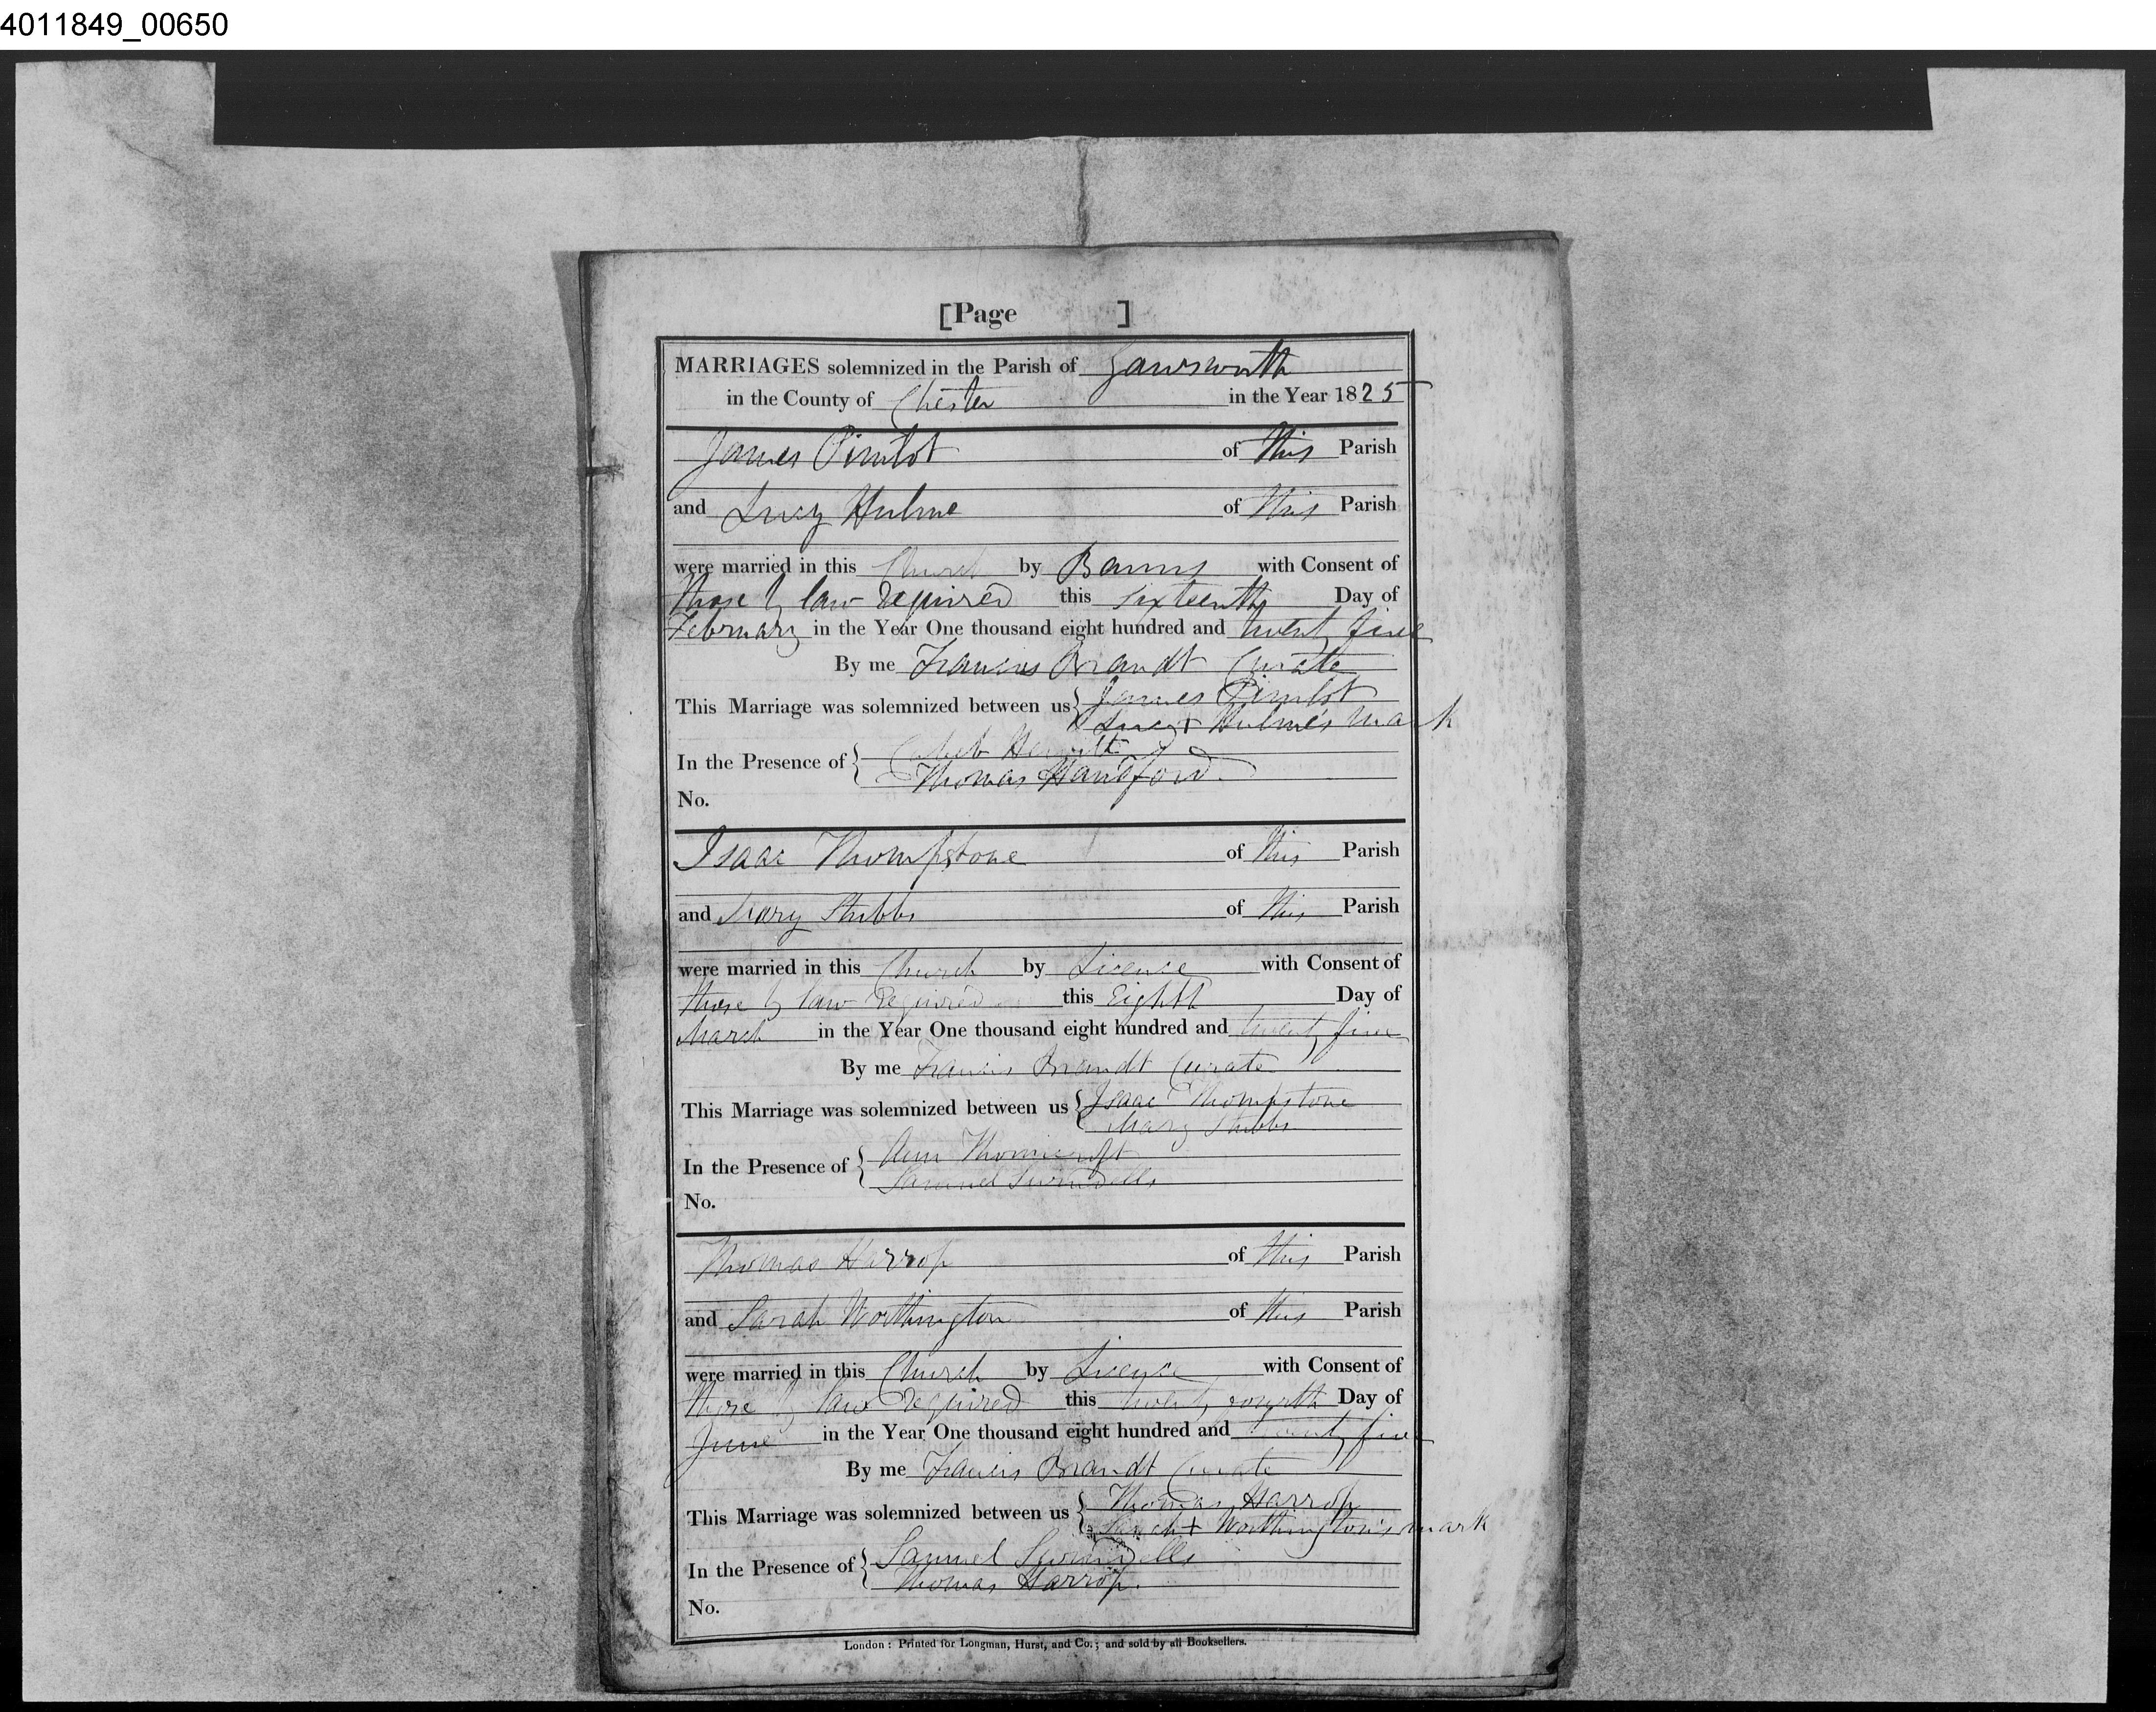 4011849_00650
[Page ]
MARRIAGES solemnized in the Parish of Gawsworth
in the County of Chester in the Year 1825
James Pimlot of this Parish
and Lucy Hulme of this Parish
were married in this Church by Banns with Consent of
those by law required this sixteenth Day of
February in the Year One thousand eight hundred and twenty five
By me Francis Brandt Curate
This Marriage was solemnized between us { James Pimlot
Lucy + Hulme's mark
In the Presence of { Caleb Hewitt
Thomas Handford
No.
Isaac Thompstone of this Parish
and Mary Stubbs of this Parish
were married in this Church by License with Consent of
those by law required this Eighth Day of
March in the Year One thousand eight hundred and twenty five
By me Francis Brandt Curate
This Marriage was solemnized between us { Isaac Thompstone
Mary Stubbs
In the Presence of { Ann Thornicroft
Samuel Swindells
No.
Thomas Harrop of this Parish
and Sarah Worthington of this Parish
were married in this Church by License with Consent of
those by law required this twenty fourth Day of
June in the Year One thousand eight hundred and twenty five
By me Francis Brandt Curate
This Marriage was solemnized between us { Thomas Harrop
Sarah + Worthington's mark
In the Presence of { Samuel Swindells
Thomas Harrop.
No.
London: Printed for Longman, Hurst, and Co.; and sold by all Booksellers.